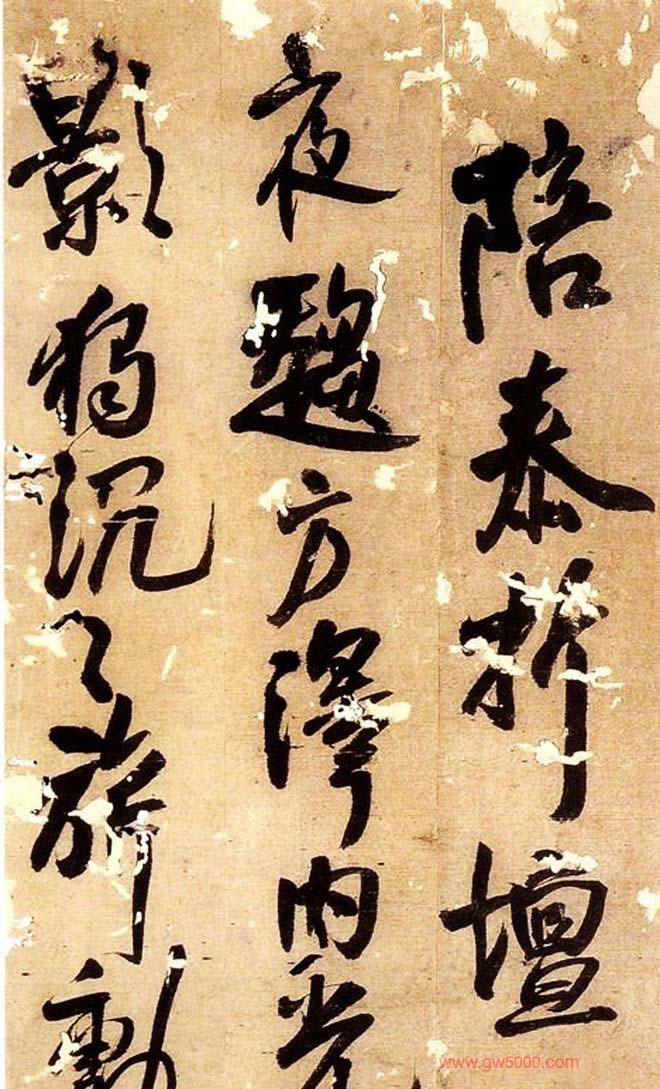 陪泰折壇
夜趨方澤內光
影獨沉々旂動
www.gw5000.com